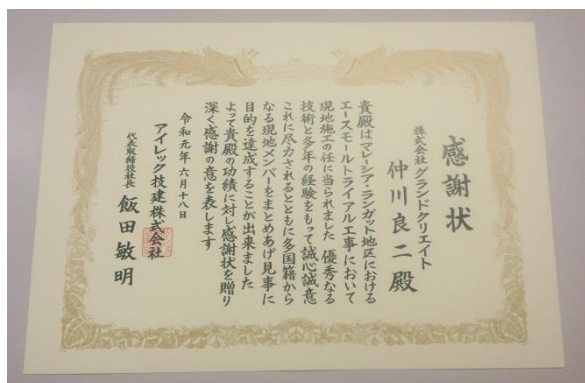 感謝状
株式会社グランドクリエイト
仲川良二殿
貴殿はマレーシア・ランガット地区における
エースモールトライアル工事において
現地施工の任に当られました 優秀なる
技術と多年の経験をもって誠心誠意
これに尽力されるとともに多国籍から
なる現地メンバーをまとめあげ見事に
目的を達成することが出来ました
よって貴殿の功績に対し感謝状を贈り
深く感謝の意を表します
令和元年六月十八日
アイレック技建株式会社
代表取締役社長 飯田敏明